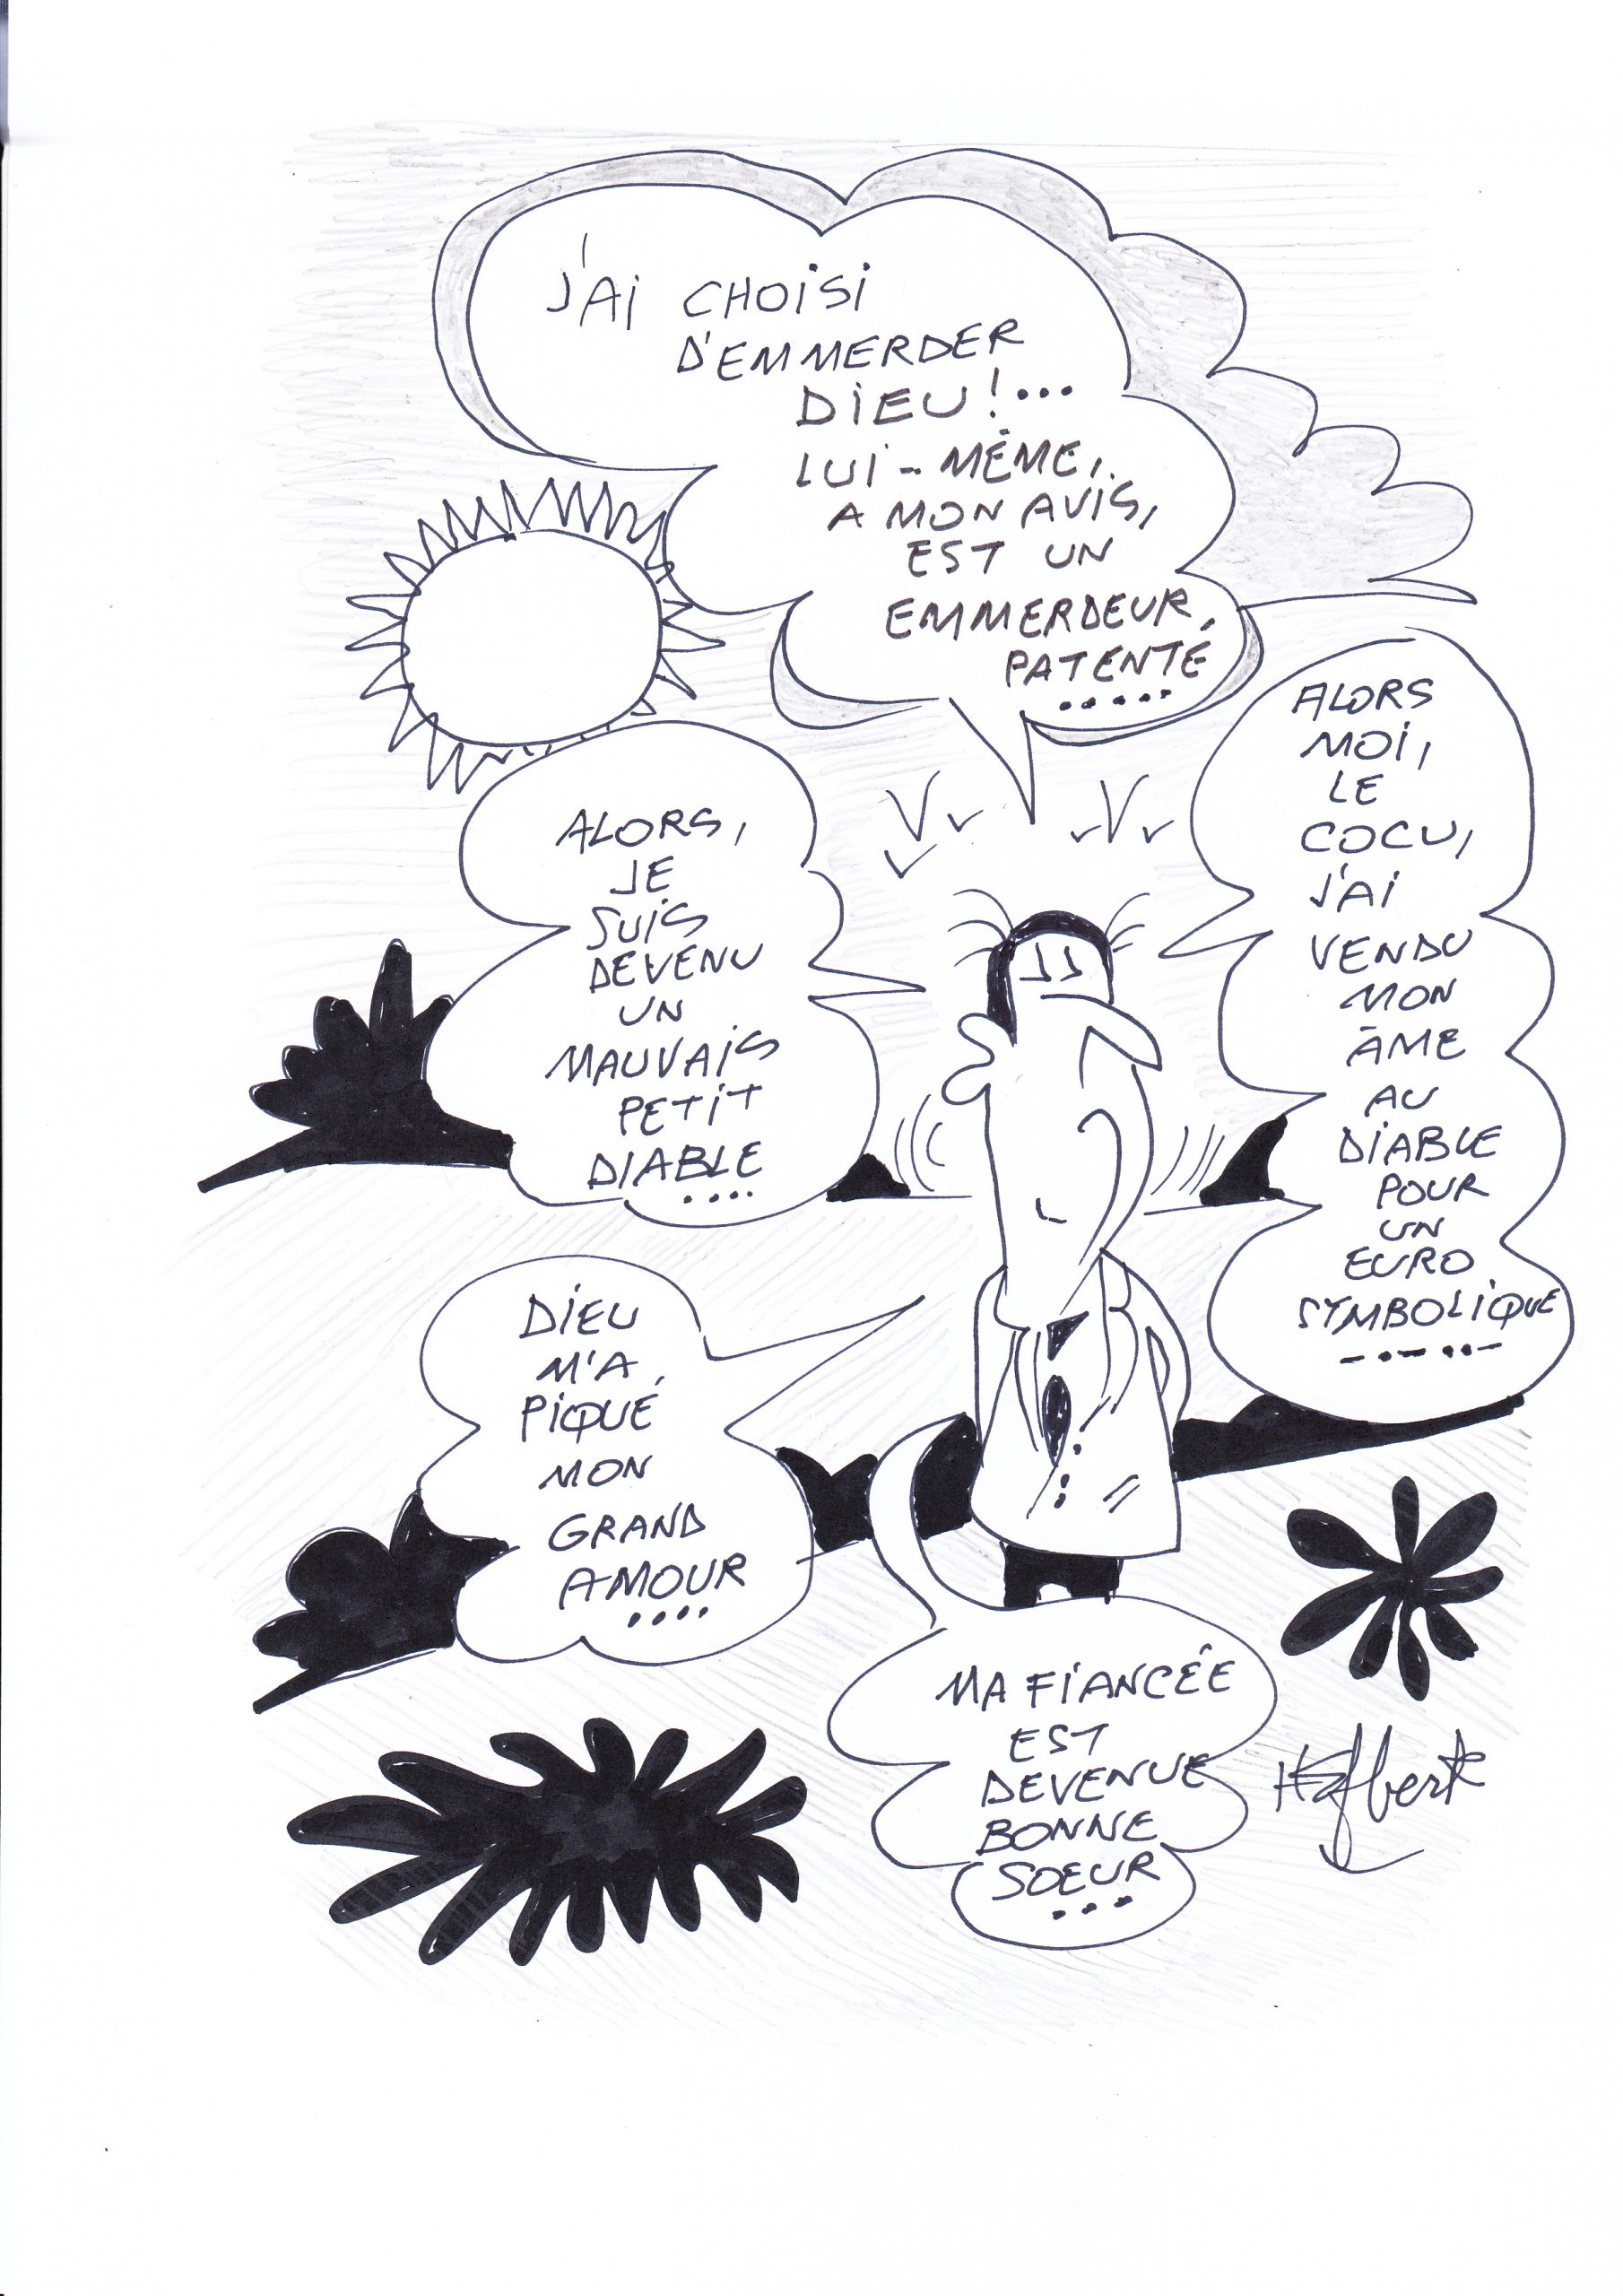 J'AI CHOISI
D'EMMERDER
DIEU !...
LUI-MÊME,
A MON AVIS,
EST UN
EMMERDEUR
PATENTÉ
.....
ALORS,
JE
SUIS
DEVENU
UN
MAUVAIS
PETIT
DIABLE
....
ALORS
MOI,
LE
COCU,
J'AI
VENDU
MON
ÂME
AU
DIABLE
POUR
UN
EURO
SYMBOLIQUE
DIEU
M'A
PIQUÉ
MON
GRAND
AMOUR
....
MA FIANCÉE
EST
DEVENUE
BONNE
SOEUR
...